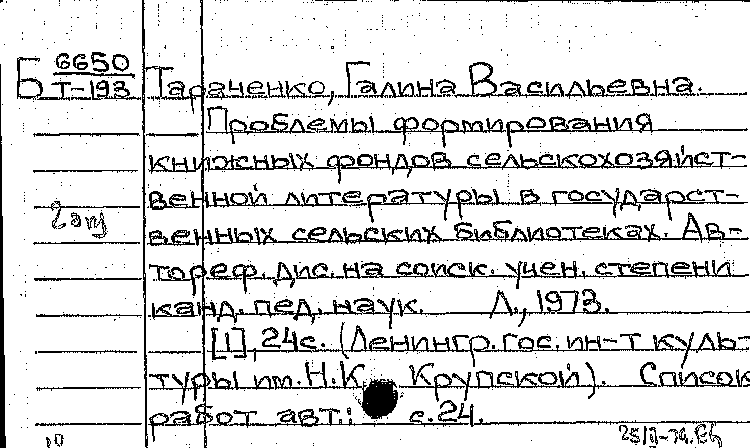 Б 6650
Т-193
Тараченко, Галина Васильевна.
Проблемы формирования
книжных фондов сельскохозяйст-
венной литературы в государст-
2 экз
венных сельских библиотеках. Ав-
тореф. дис. на соиск. учен. степени
канд. пед. наук. Л., 1973.
[1], 24с. (Ленингр. гос. ин-т куль-
туры им. Н.К. Крупской). Список
работ авт.: с.24.